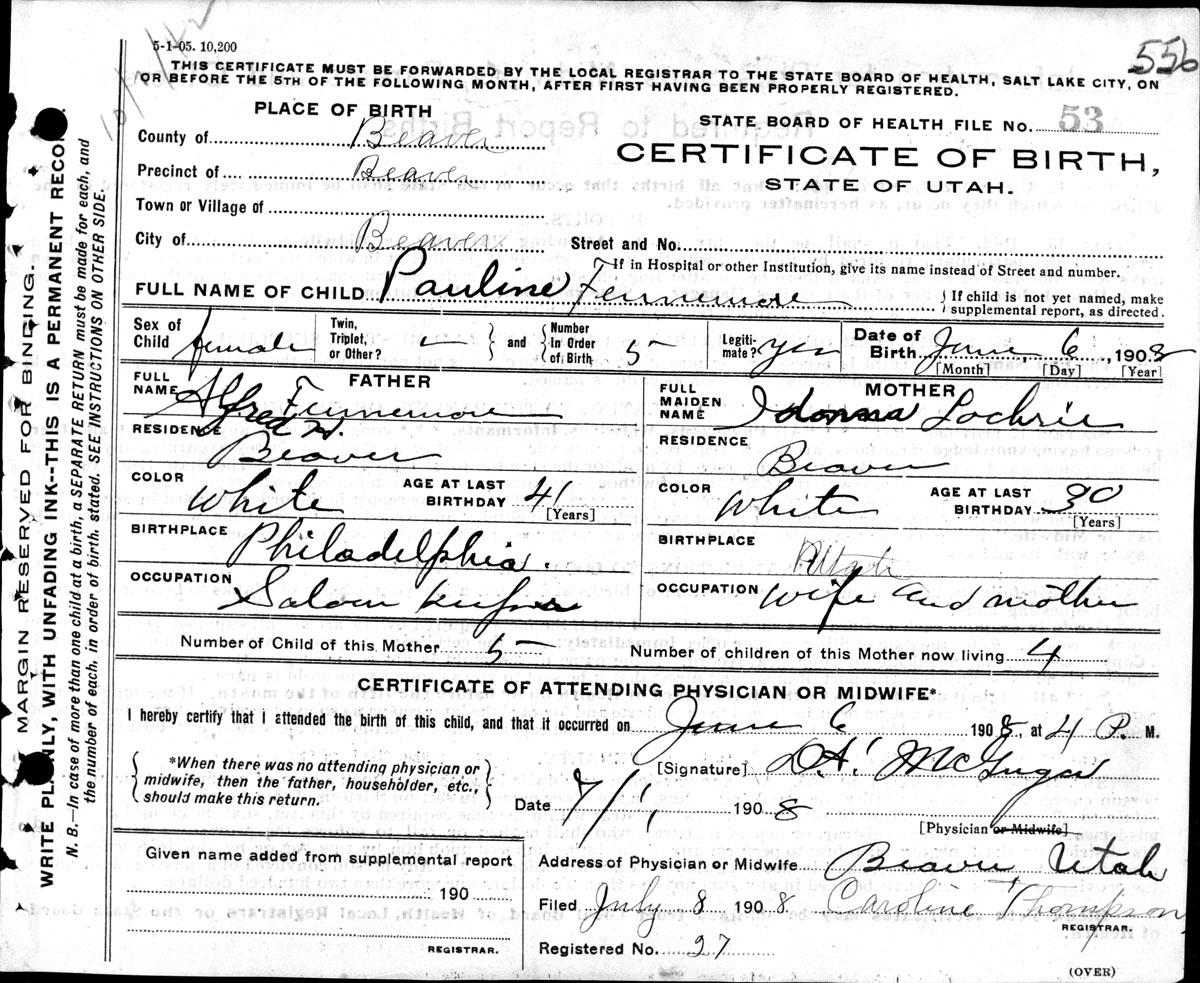 10/1/42
5-1-05. 10,200
556
THIS CERTIFICATE MUST BE FORWARDED BY THE LOCAL REGISTRAR TO THE STATE BOARD OF HEALTH, SALT LAKE CITY, ON
OR BEFORE THE 5TH OF THE FOLLOWING MONTH, AFTER FIRST HAVING BEEN PROPERLY REGISTERED.
PLACE OF BIRTH
STATE BOARD OF HEALTH FILE No. 53
County of Beaver
CERTIFICATE OF BIRTH,
Precinct of Beaver
STATE OF UTAH.
Town or Village of
City of Beaver Street and No.
If in Hospital or other Institution, give its name instead of Street and number.
FULL NAME OF CHILD Pauline Fennemore
If child is not yet named, make
supplemental report, as directed.
Sex of Child female Twin, Triplet, or Other? - and Number In Order of Birth 5 Legiti-mate? yes Date of Birth June 6 1908
[Month] [Day] [Year]
FATHER
FULL NAME Alfred H. Fennemore
RESIDENCE Beaver
COLOR White AGE AT LAST BIRTHDAY 41
[Years]
BIRTHPLACE Philadelphia.
OCCUPATION Saloon keeper
MOTHER
FULL MAIDEN NAME Idonna Lochrie
RESIDENCE Beaver
COLOR White AGE AT LAST BIRTHDAY 30
[Years]
BIRTHPLACE Utah
OCCUPATION wife and mother
Number of Child of this Mother 5 Number of children of this Mother now living 4
CERTIFICATE OF ATTENDING PHYSICIAN OR MIDWIFE*.
I hereby certify that I attended the birth of this child, and that it occurred on June 6 1908, at 4 P. M.
*When there was no attending physician or
midwife, then the father, householder, etc.,
should make this return.
[Signature] McGregor
Date 7/1, 1908
[Physician or Midwife]
Given name added from supplemental report
190
REGISTRAR.
Address of Physician or Midwife Beaver, Utah
Filed July 8 1908 Caroline Thompson
REGISTRAR.
Registered No. 27
(OVER)
MARGIN RESERVED FOR BINDING.
WRITE PLAINLY, WITH UNFADING INK--THIS IS A PERMANENT RECORD.
N. B.—In case of more than one child at a birth, a SEPARATE RETURN must be made for each, and
the number of each, in order of birth, stated. SEE INSTRUCTIONS ON OTHER SIDE.